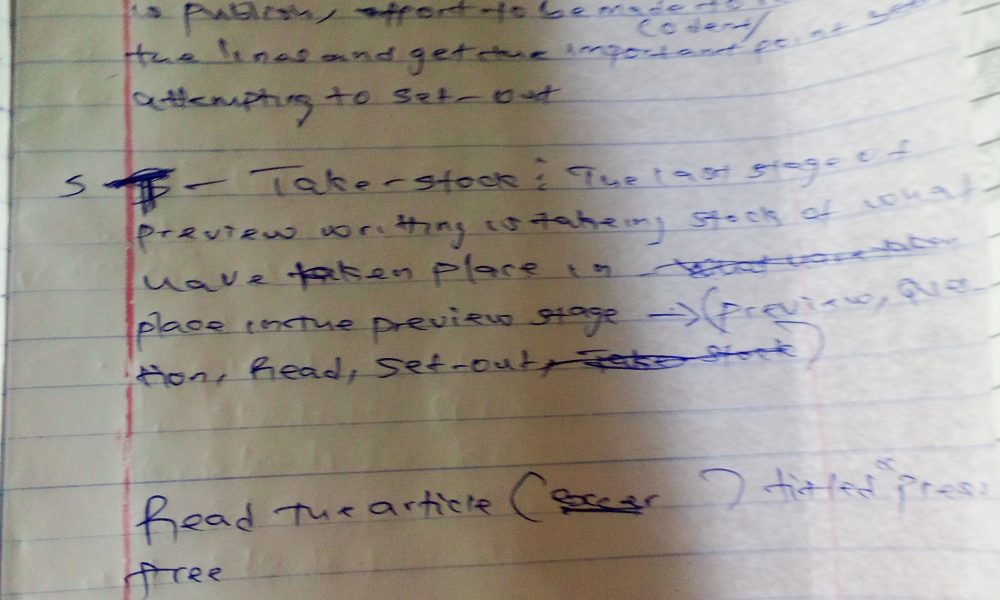 is publish, effort to be made to
(identify
the lines and get the important point
attempting to set-out
5 - Take-stock: The last stage of
preview writting is takeing stock of what
have taken place in
place in the preview stage → (preview, ques-
tion, Read, Set-out, Take stock)
Read the article ( ) titled "press
free